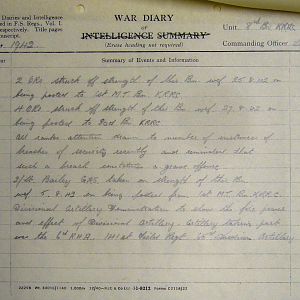 Diaries and Intelligence
d in F.S. Regs., Vol. I.
espectively. Title pages
nuscript.
1942
WAR DIARY
OF
INTELLIGENCE SUMMARY
(Erase heading not required)
Unit. 8th Bn KRRC
Commanding Officer
Summary of Events and Information
2 ORs struck off strength of the Bn wef 25.8.42 on
being posted to 1st MT Bn KRRC
4 ORs struck off strength of the Bn wef 27.8.42 on
being posted to 2nd KRRC
All ranks attention drawn to number of instances of
breaches of security recently and reminded that
such a breach constitutes a grave offence
2/Lt. Bailey taken on strength of the Bn
wef 5.8.42 on being posted from 1st MT Bn K.R.R.C.
Divisional Artillery Demonstration to show the fire power
and effect of Divisional Artillery. Artillery taking part
was the 6th R.H.A. 141 Field Regt 65th Artillery